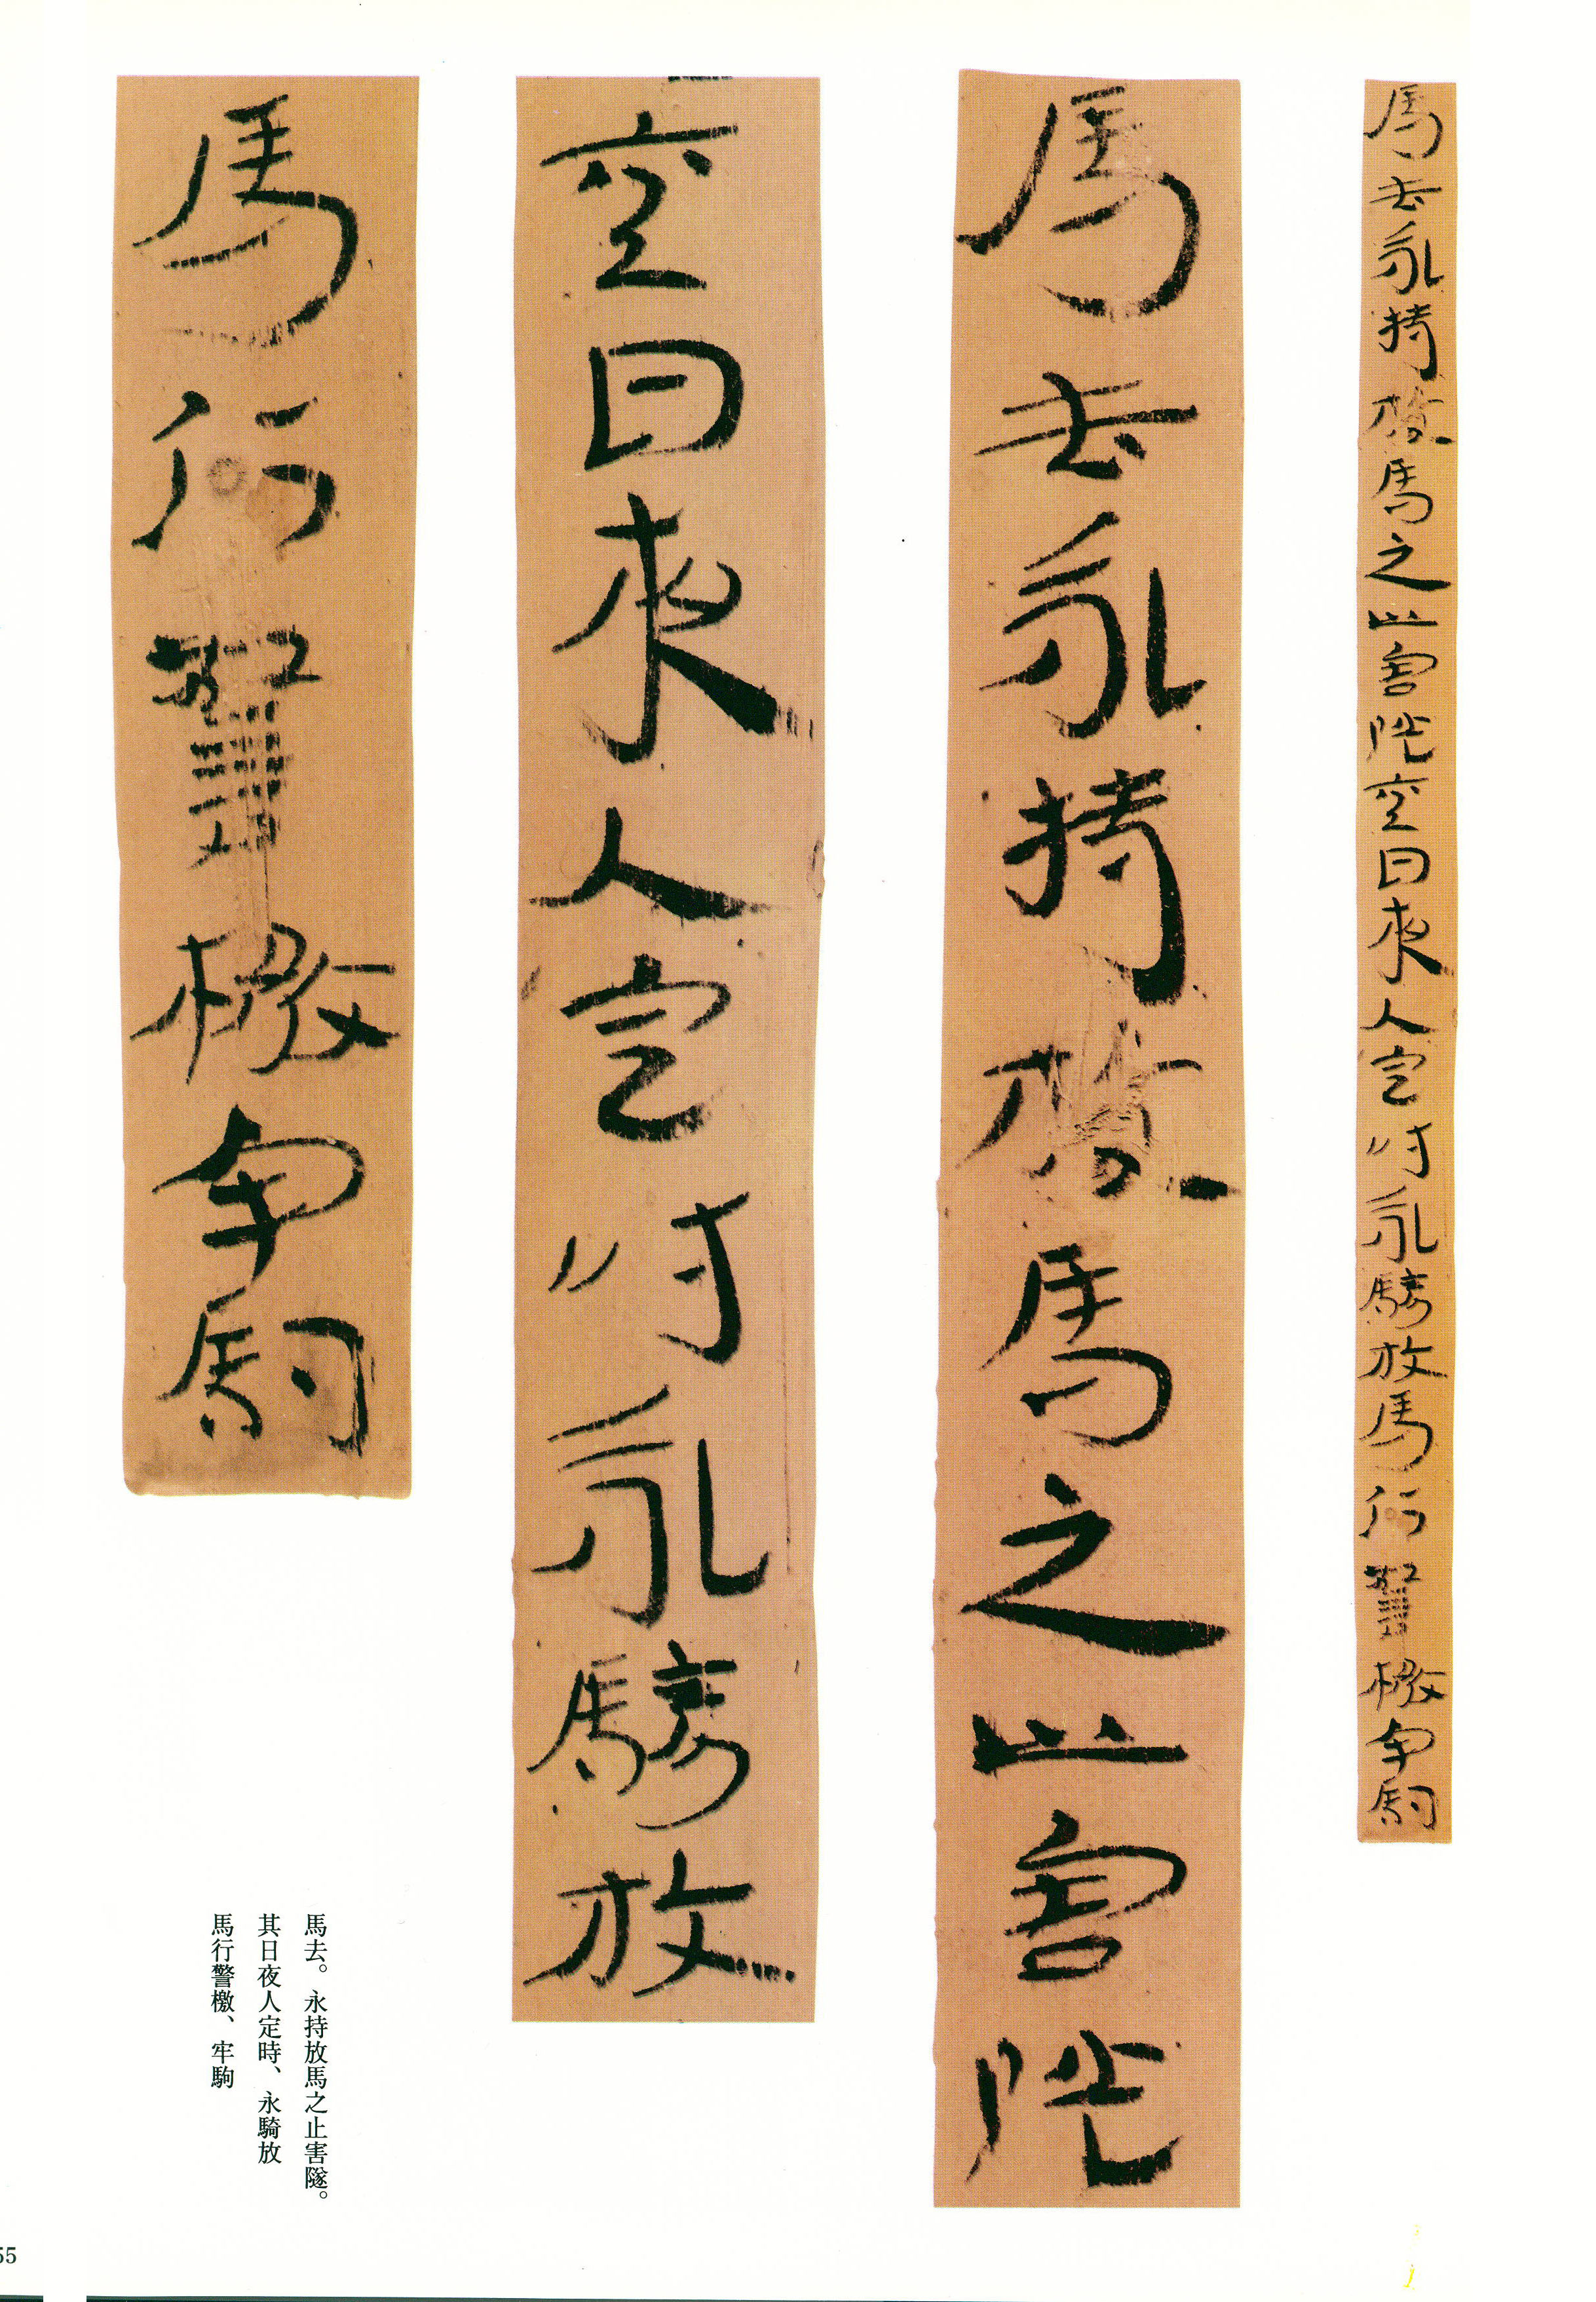 馬去永持放馬之止害隧其日夜人定時永騎放馬行警檄牢駒
馬去永持放馬之止害隧
其日夜人定時永騎放
馬行警檄牢駒
馬去。永持放馬之止害隧。
其日夜人定時、永騎放
馬行警檄、牢駒
55